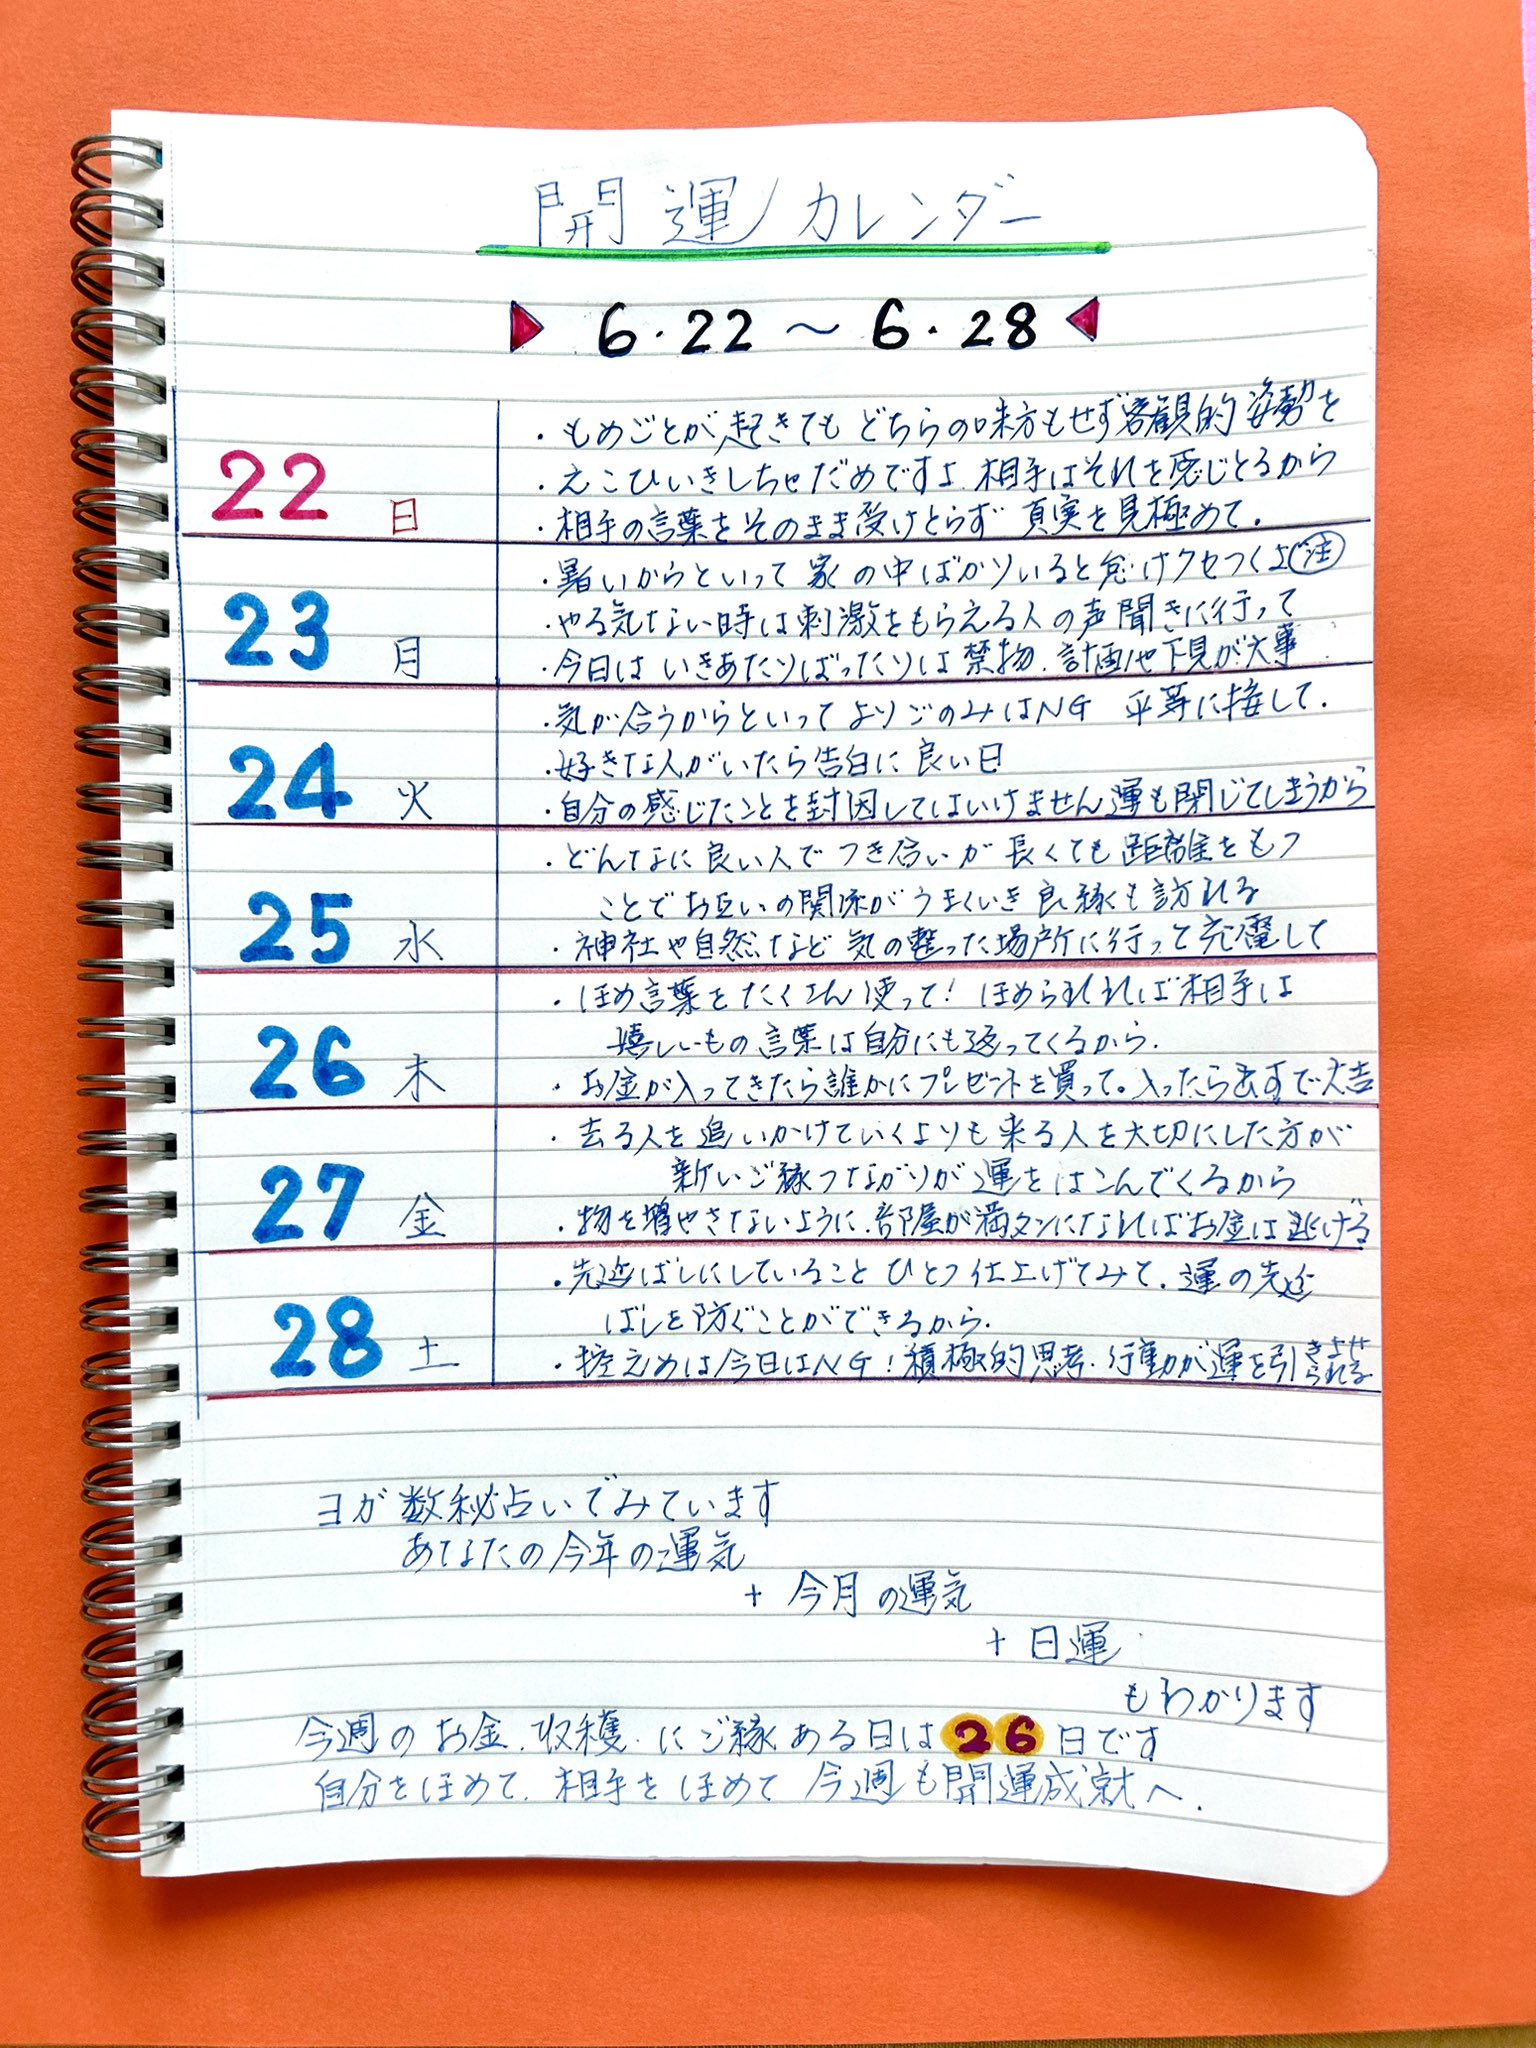 開運カレンダー
6・22 〜 6・28
22 日
・もめごとが起きてもどちらの味方もせず客観的姿勢を
・えこひいきしちゃだめですよ.相手はそれを感じとるから
・相手の言葉をそのまま受けとらず 真実を見極めて.
23 月
・暑いからといって家の中ばかりいると怠けクセつくよ 注
・やる気ない時は刺激をもらえる人の声聞きに行って
・今日はいきあたりばったりは禁物.計画や下見が大事
24 火
・気が合うからといってよりごのみはNG 平等に接して.
・好きな人がいたら告白に良い日
・自分の感じたことを封印してはいけません運も閉じてしまうから
25 水
・どんなに良い人でつき合いが長くても距離をもつ
ことでお互いの関係がうまくいき良縁も訪れる
・神社や自然など気の整った場所に行って充電して
26 木
・ほめ言葉をたくさん使って! ほめられれば相手は
嬉しいもの言葉は自分にも返ってくるから.
・お金が入ってきたら誰かにプレゼントを買って。入ったら出すで大吉
27 金
・去る人を追いかけていくよりも来る人を大切にした方が
新いご縁つながりが運をはこんでくるから
・物を増やさないように.部屋が満タンになればお金は逃げる
28 土
・先延ばしにしていることひとつ仕上げてみて.運の先延
ばしを防ぐことができるから.
・控えめは今日はNG!積極的思考.行動が運を引きよせられる
ヨガ数秘占いでみています
あなたの今年の運気
+ 今月の運気
+ 日運
もわかります
今週のお金.収穫.にご縁ある日は26日です
自分をほめて.相手をほめて今週も開運成就へ.